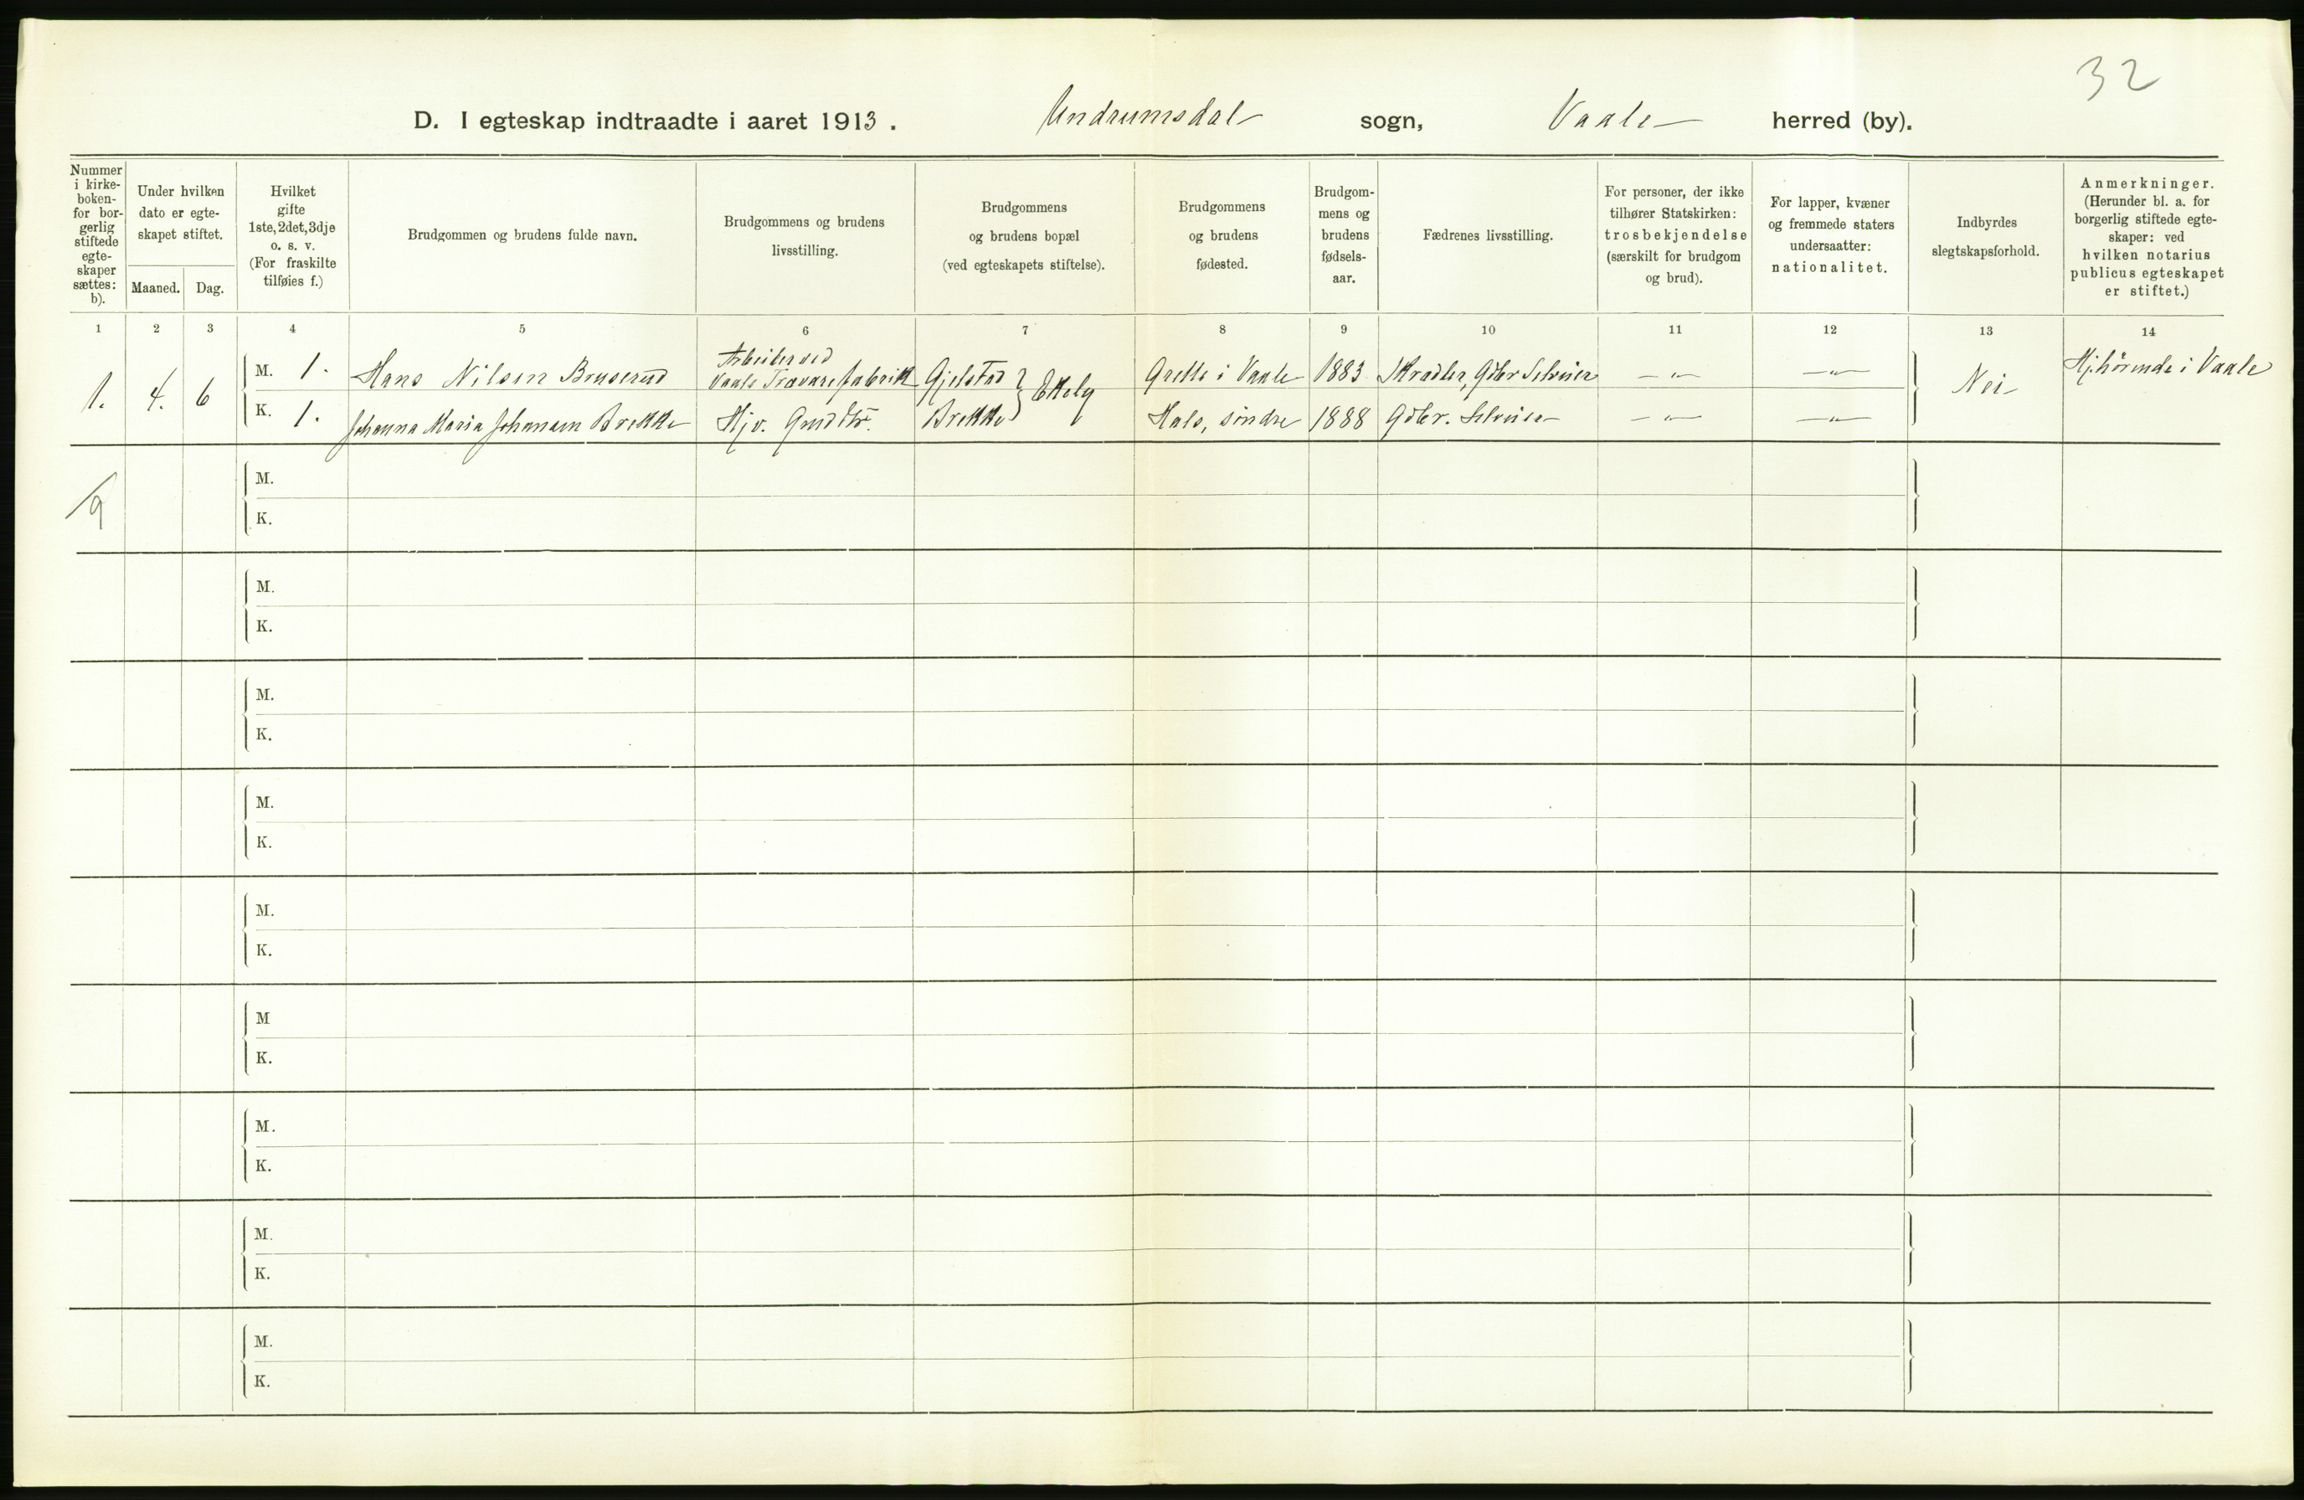 32
D. I egteskap indtraadte i aaret 1913. Undrumsdal sogn, Vaale herred (by).
Nummer i kirke- boken- for bor- gerlig stiftede egte- skaper sættes: b).
Under hvilken dato er egte- skapet stiftet.
Maaned. Dag.
Hvilket gifte 1ste, 2det, 3dje o. s. v. (For fraskilte tilføies f.)
Brudgommen og brudens fulde navn.
Brudgommens og brudens livsstilling.
Brudgommens og brudens bopæl (ved egteskapets stiftelse).
Brudgommens og brudens fødested.
Brudgom- mens og brudens fødsels- aar.
Fædrenes livsstilling.
For personer, der ikke tilhører Statskirken: trosbekjendelse (særskilt for brudgom og brud).
For lapper, kvæner og fremmede staters undersaatter: nationalitet.
Indbyrdes slegtskapsforhold.
Anmerkninger. (Herunder bl. a. for borgerlig stiftede egte- skaper: ved hvilken notarius publicus egteskapet er stiftet.)
1 2 3 4 5 6 7 8 9 10 11 12 13 14
1. 4. 6 M. 1. Hans Nilsen Bruserud Arbeider ved Vaale Trævarefabrikk Gjelstad } Ekely Grette i Vaale 1883 Skrædder, Gdbr Selveier — „ — — „ — Nei Hj.hörende i Vaale
K. 1. Johanna Maria Johansen Brekke Hjv. Gmdtr. Brekke Hals, søndre 1888 Gdbr. Selveier — „ — — „ —
9
M.
K.
M.
K.
M.
K.
M.
K.
M.
K.
M
K.
M.
K.
M.
K.
M.
K.